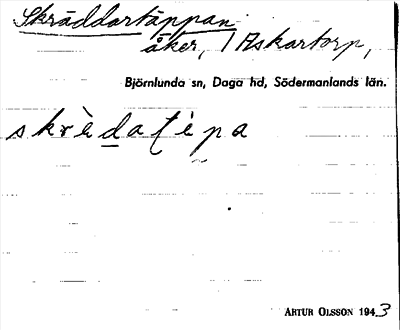 Skräddartäppan
åker, 1 Askartorp,
Björnlunda sn, Daga hd, Södermanlands län.
skrèdatèpa
ARTUR OLSSON 1943